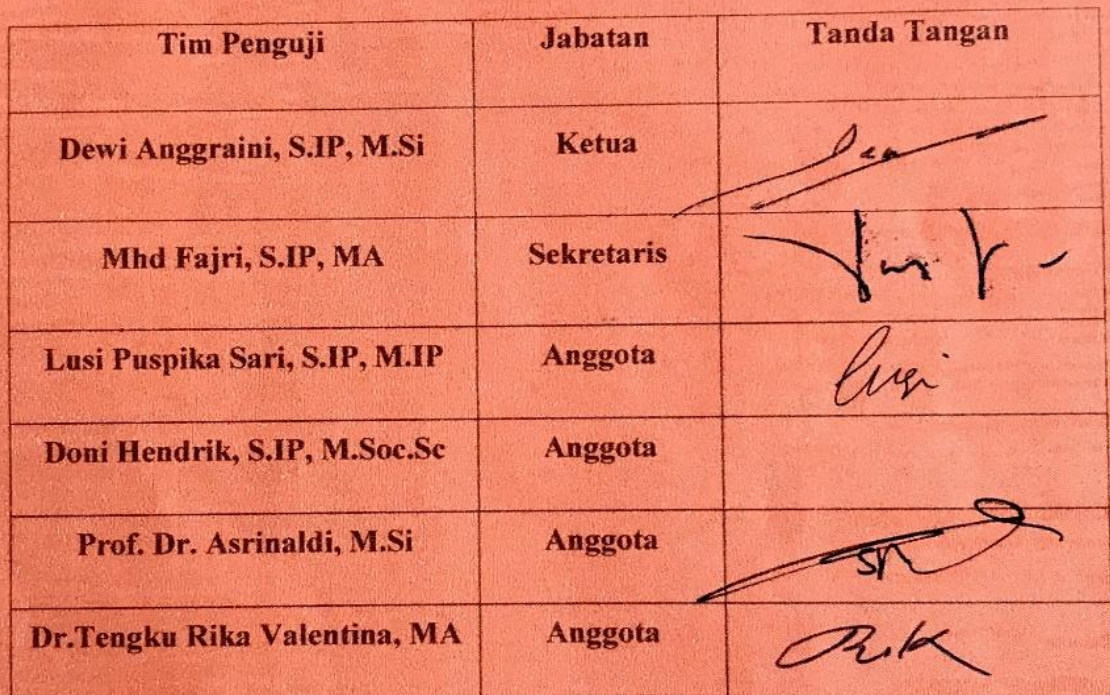 Tim Penguji Jabatan Tanda Tangan
Dewi Anggraini, S.IP, M.Si Ketua
Mhd Fajri, S.IP, MA Sekretaris
Lusi Puspika Sari, S.IP, M.IP Anggota
Doni Hendrik, S.IP, M.Soc.Sc Anggota
Prof. Dr. Asrinaldi, M.Si Anggota
Dr.Tengku Rika Valentina, MA Anggota